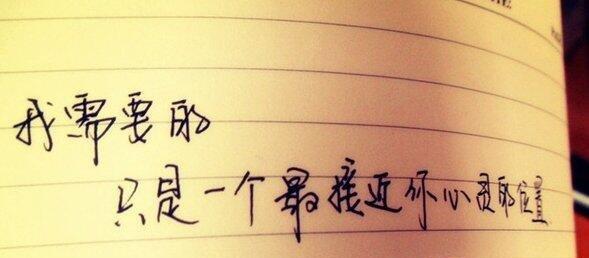 我需要的
只是一个最接近你心灵的位置